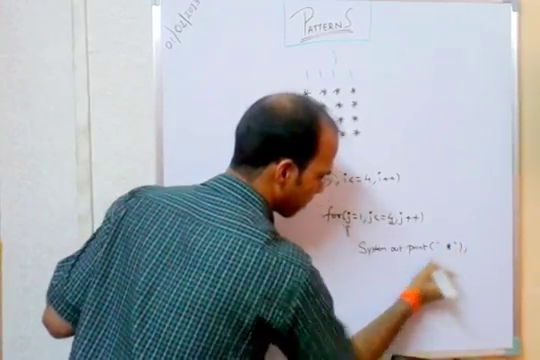 01/02/2023
PATTERNS
* * * *
*
*
* *
), i<=4, i++)
for(j=1, j<=4, j++)
{
System.out.print(" * ");